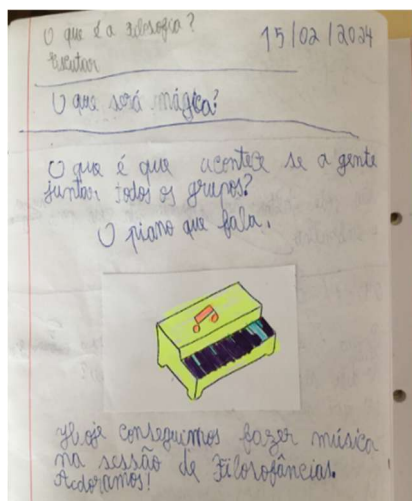 O que é a filosofia?
15/02/2024
Escutar
O que será mágica?
O que é que acontece se a gente
juntar todos os grupos?
O piano que fala.
Hoje conseguimos fazer música
na sessão de Filosofâncias.
Adoramos!